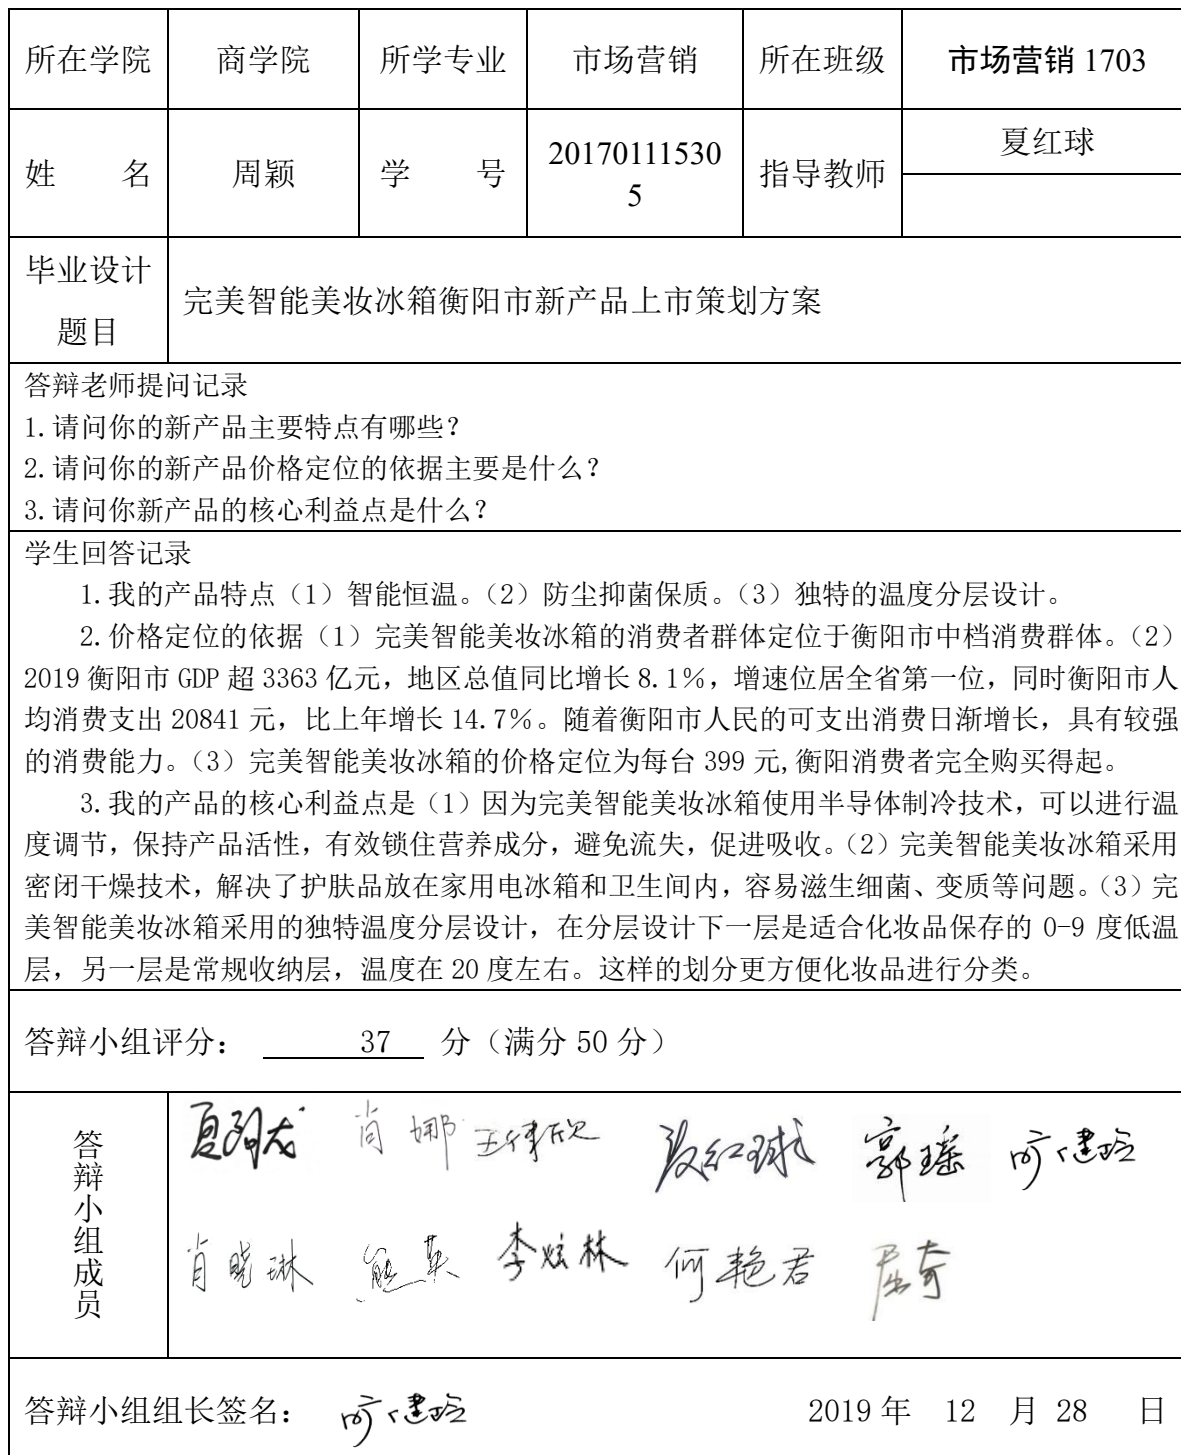 所在学院 商学院 所学专业 市场营销 所在班级 市场营销 1703
姓 名 周颖 学 号 20170111530
5 指导教师 夏红球
毕业设计
题目
完美智能美妆冰箱衡阳市新产品上市策划方案
答辩老师提问记录
1.请问你的新产品主要特点有哪些？
2.请问你的新产品价格定位的依据主要是什么？
3.请问你新产品的核心利益点是什么？
学生回答记录
1.我的产品特点（1）智能恒温。（2）防尘抑菌保质。（3）独特的温度分层设计。
2.价格定位的依据（1）完美智能美妆冰箱的消费者群体定位于衡阳市中档消费群体。（2）
2019 衡阳市 GDP 超 3363 亿元，地区总值同比增长 8.1％，增速位居全省第一位，同时衡阳市人
均消费支出 20841 元，比上年增长 14.7％。随着衡阳市人民的可支出消费日渐增长，具有较强
的消费能力。（3）完美智能美妆冰箱的价格定位为每台 399 元,衡阳消费者完全购买得起。
3.我的产品的核心利益点是（1）因为完美智能美妆冰箱使用半导体制冷技术，可以进行温
度调节，保持产品活性，有效锁住营养成分，避免流失，促进吸收。（2）完美智能美妆冰箱采用
密闭干燥技术，解决了护肤品放在家用电冰箱和卫生间内，容易滋生细菌、变质等问题。（3）完
美智能美妆冰箱采用的独特温度分层设计，在分层设计下一层是适合化妆品保存的 0-9 度低温
层，另一层是常规收纳层，温度在 20 度左右。这样的划分更方便化妆品进行分类。
答辩小组评分： 37 分（满分 50 分）
答辩小组成员
肖娜 夏红球 郭瑶
肖晓琳 熊英 李炫林 何艳君 屈奇
答辩小组组长签名： 2019 年 12 月 28 日